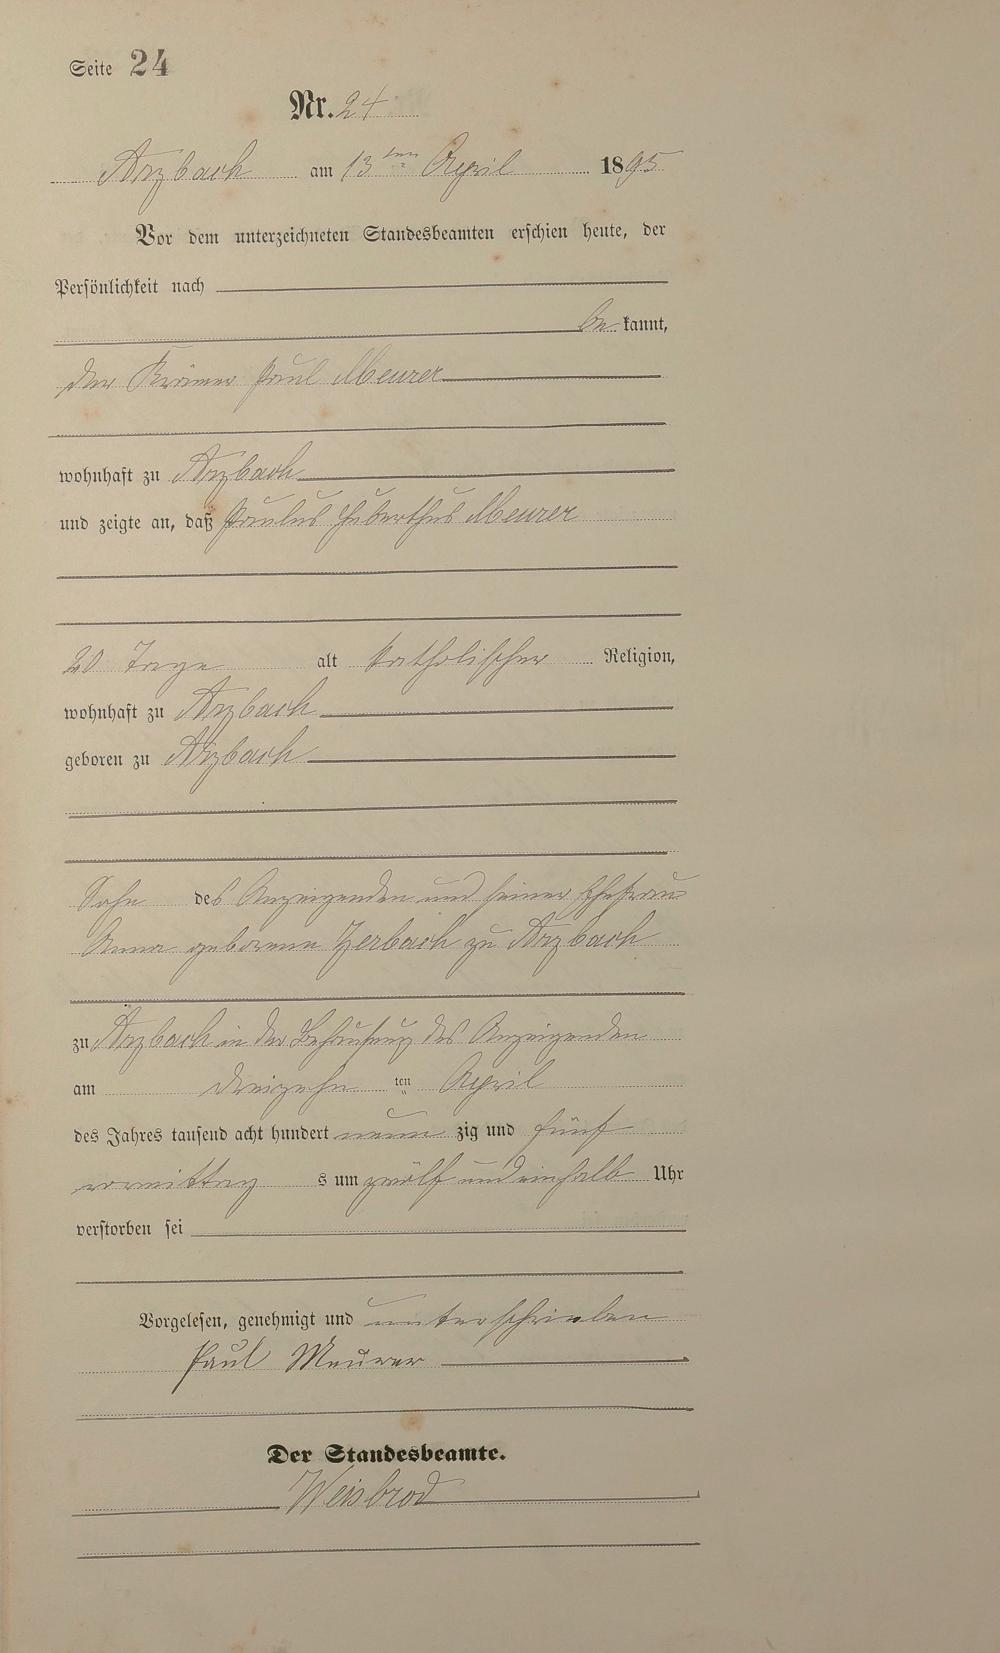 Seite 24
Nr. 24
Arzbach am 13ten April 1895
Vor dem unterzeichneten Standesbeamten erschien heute, der
Persönlichkeit nach
be kannt,
der Krämer Paul Meurer
wohnhaft zu Arzbach
und zeigte an, daß Paulus Hubertus Meurer
20 Tage alt katholischer Religion,
wohnhaft zu Arzbach
geboren zu Arzbach
Sohn des Anzeigenden und seiner Ehefrau
Anna geborene Zerbach zu Arzbach
zu Arzbach in der Behausung des Anzeigenden
am dreizehn ten April
des Jahres tausend acht hundert neun zig und fünf
vormittag s um zwölf und einhalb Uhr
verstorben sei
Vorgelesen, genehmigt und unterschrieben
Paul Meurer
Der Standesbeamte.
Weisbrod